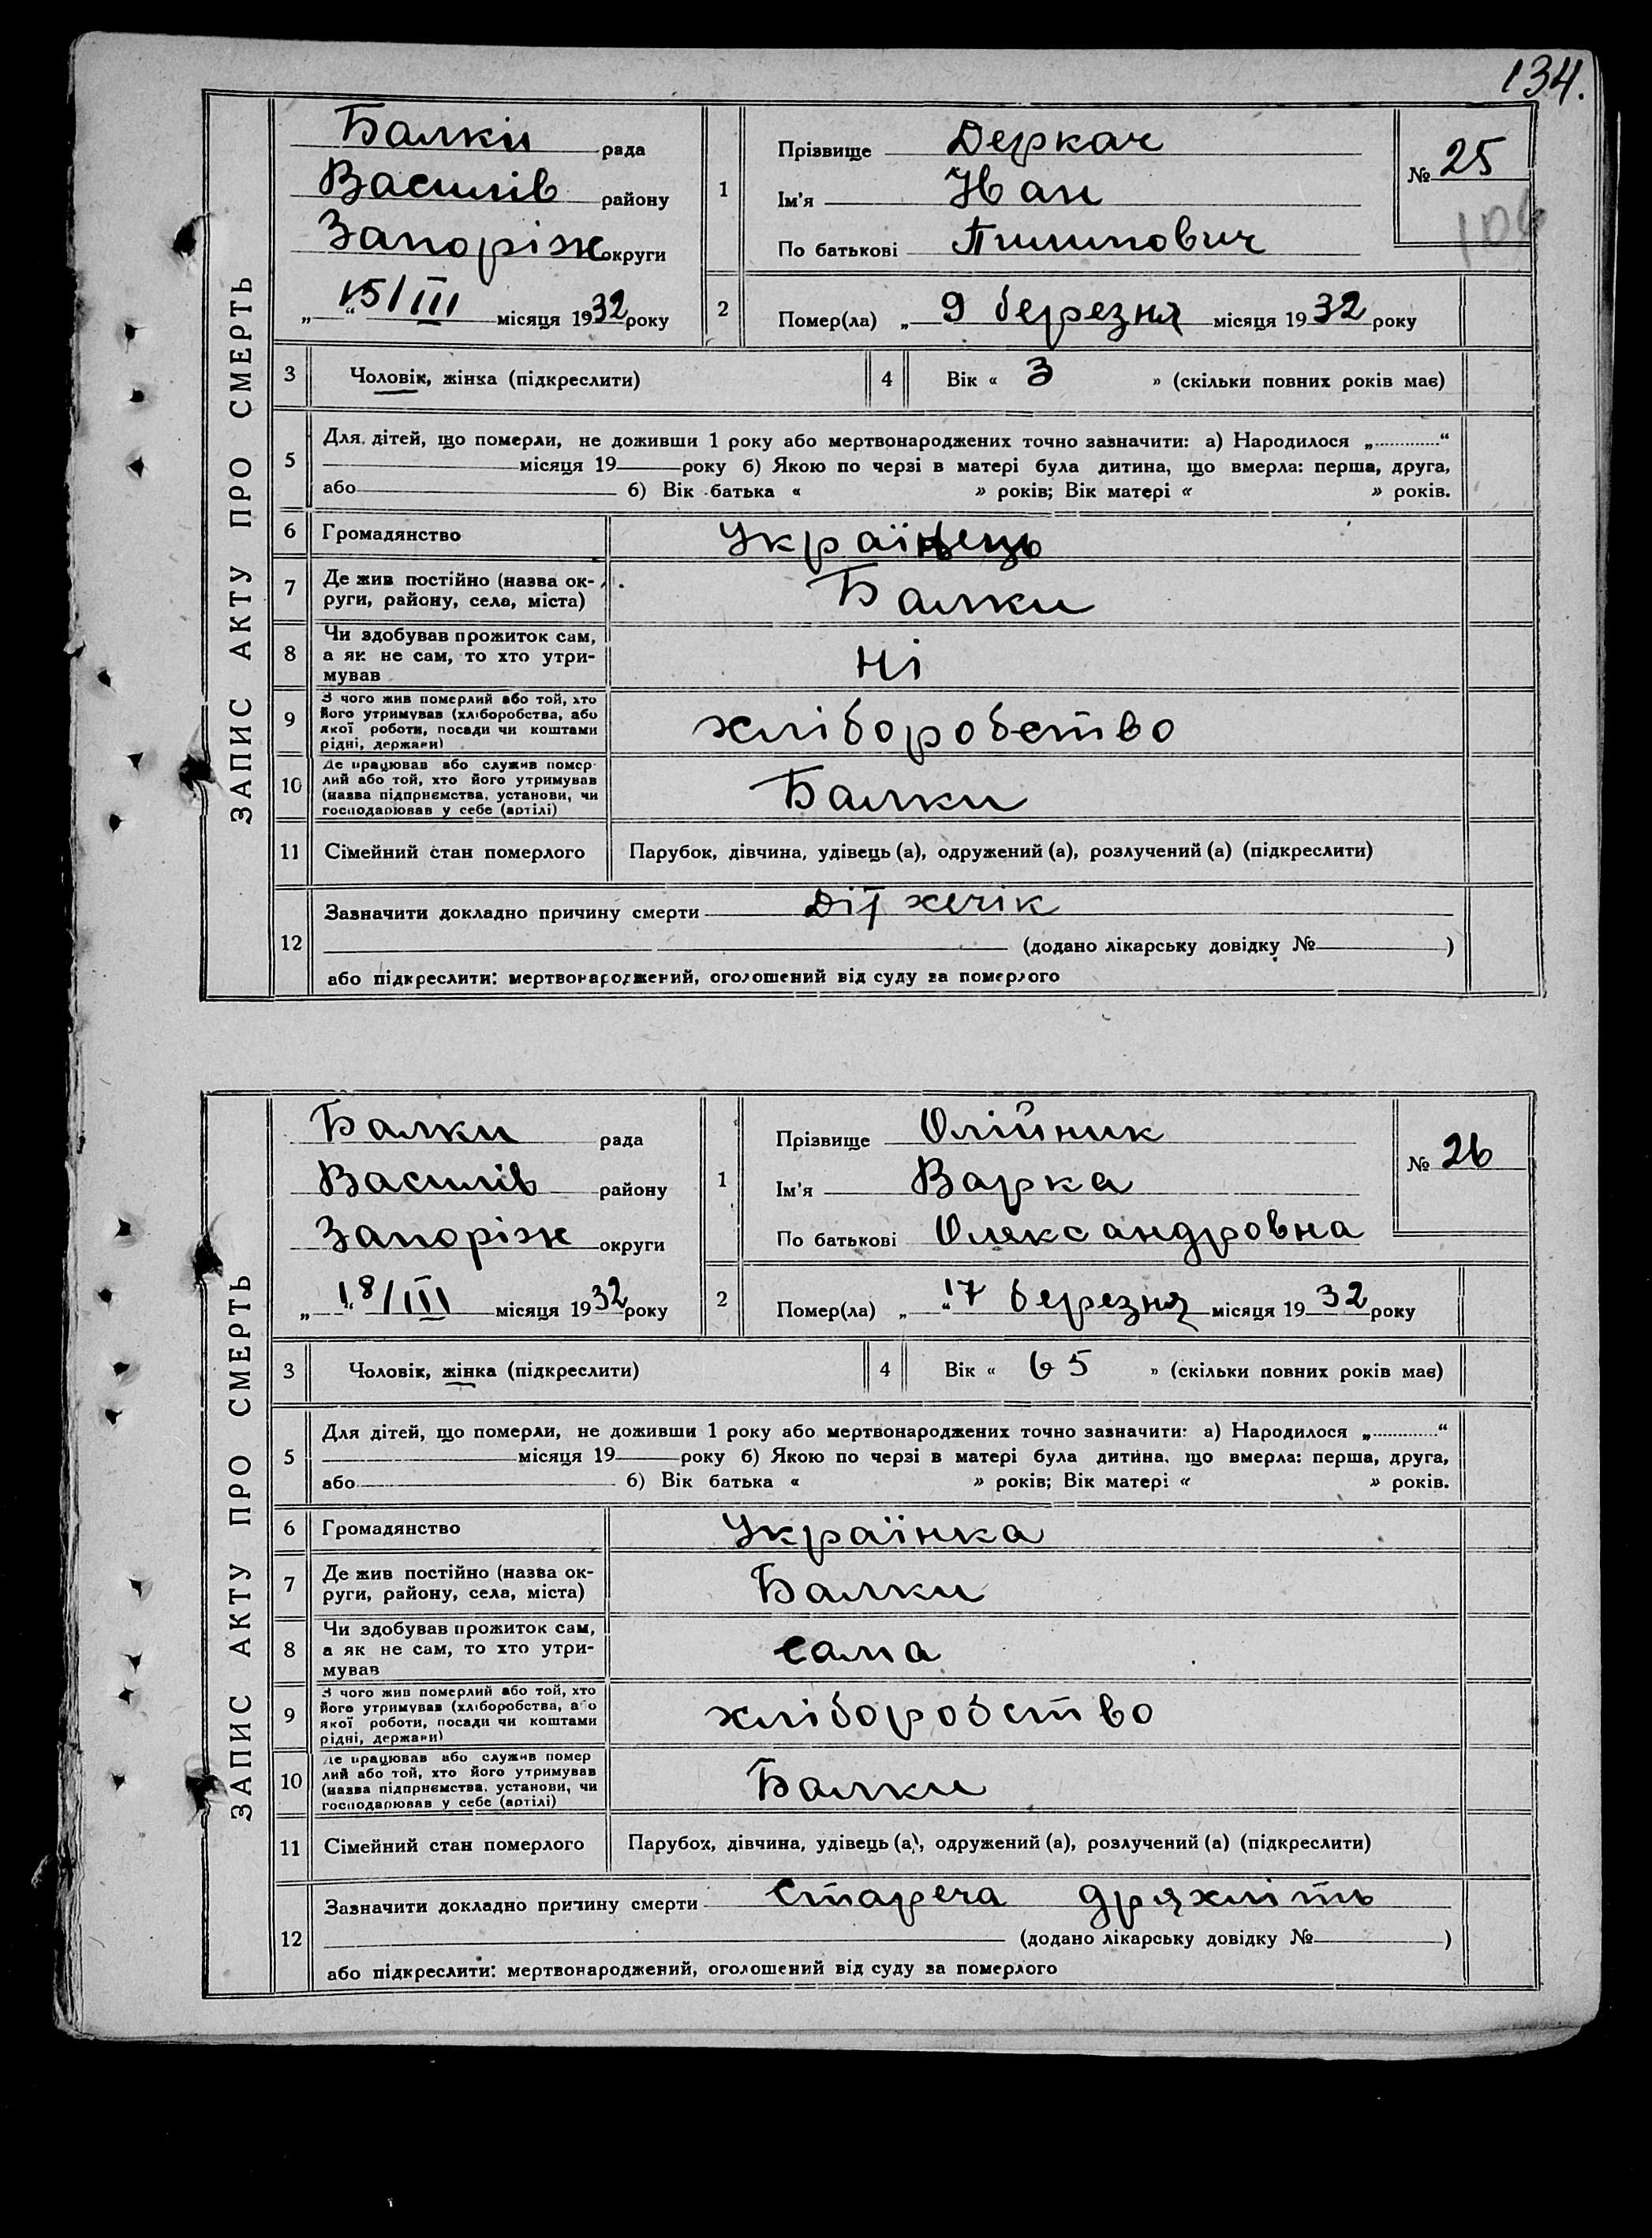 134.
ЗАПИС АКТУ ПРО СМЕРТЬ
Балки рада
Василів району
Запоріж округи
„ “ 15/III місяця 1932 року
1
Прізвище Деркач
Ім'я Іван
По батькові Пилипович
№ 25
106
2
Помер(ла) „ 9 березня місяця 1932 року
3 Чоловік, жінка (підкреслити)
4 Вік « 3 » (скільки повних років має)
5
Для дітей, що померли, не доживши 1 року або мертвонароджених точно зазначити: а) Народилося „ “
місяця 19 року б) Якою по черзі в матері була дитина, що вмерла: перша, друга,
або б) Вік батька « » років; Вік матері « » років.
6 Громадянство Українець
7
Де жив постійно (назва ок-
руги, району, села, міста)
Балки
8
Чи здобував прожиток сам,
а як не сам, то хто утри-
мував
ні
9
З чого жив померлий або той, хто
його утримував (хліборобства, або
якої роботи, посади чи коштами
рідні, держави)
хліборобство
10
Де працював або служив помер-
лий або той, хто його утримував
(назва підприємства, установи, чи
господарював у себе (артілі)
Балки
11 Сімейний стан померлого Парубок, дівчина, удівець (а), одружений (а), розлучений (а) (підкреслити)
12
Зазначити докладно причину смерти
(додано лікарську довідку № )
або підкреслити: мертвонароджений, оголошений від суду за померлого
ЗАПИС АКТУ ПРО СМЕРТЬ
Балки рада
Василів району
Запоріж округи
„ “ 18/III місяця 1932 року
1
Прізвище Олійник
Ім'я Варка
По батькові Олександровна
№ 26
2
Помер(ла) „ “17 березня місяця 1932 року
3 Чоловік, жінка (підкреслити)
4 Вік « 65 » (скільки повних років має)
5
Для дітей, що померли, не доживши 1 року або мертвонароджених точно зазначити: а) Народилося „ “
місяця 19 року б) Якою по черзі в матері була дитина, що вмерла: перша, друга,
або б) Вік батька « » років; Вік матері « » років.
6 Громадянство Українка
7
Де жив постійно (назва ок-
руги, району, села, міста)
Балки
8
Чи здобував прожиток сам,
а як не сам, то хто утри-
мував
сама
9
З чого жив померлий або той, хто
його утримував (хліборобства, або
якої роботи, посади чи коштами
рідні, держави)
хліборобство
10
Де працював або служив помер
лий або той, хто його утримував
(назва підприємства, установи, чи
господарював у себе (артілі)
Балки
11 Сімейний стан померлого Парубок, дівчина, удівець (а), одружений (а), розлучений (а) (підкреслити)
12
Зазначити докладно причину смерти Стареча дряхліть
(додано лікарську довідку № )
або підкреслити: мертвонароджений, оголошений від суду за померлого